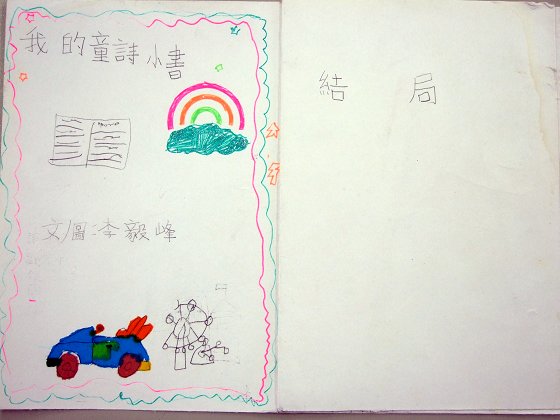 我的童詩小書
文/圖:李毅峰
結局